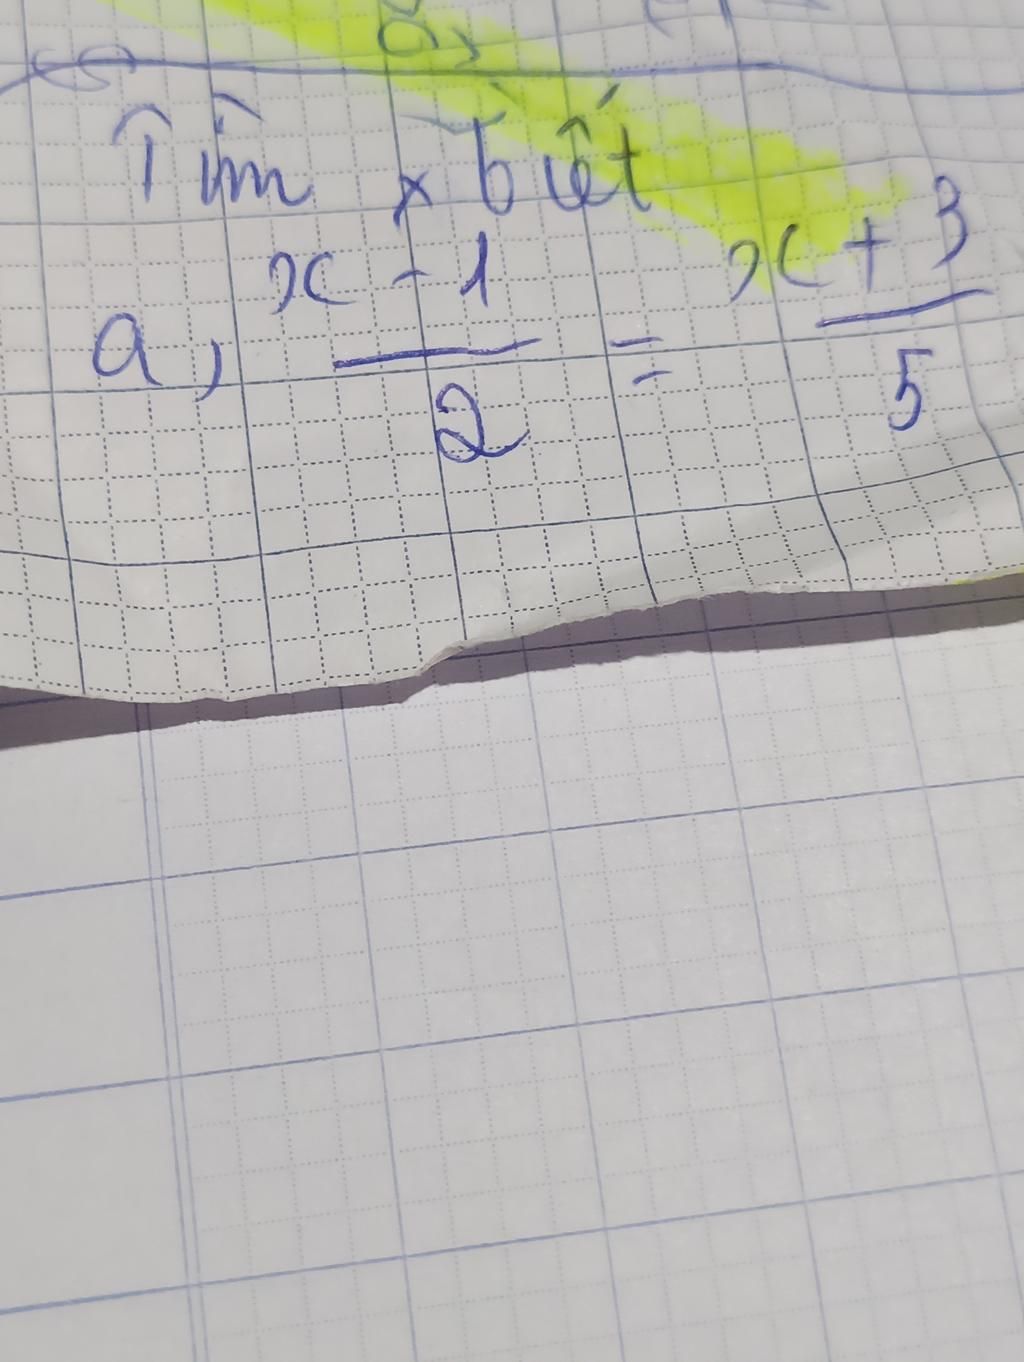 Tìm x biết
a, x - 1 / 2 = x + 3 / 5